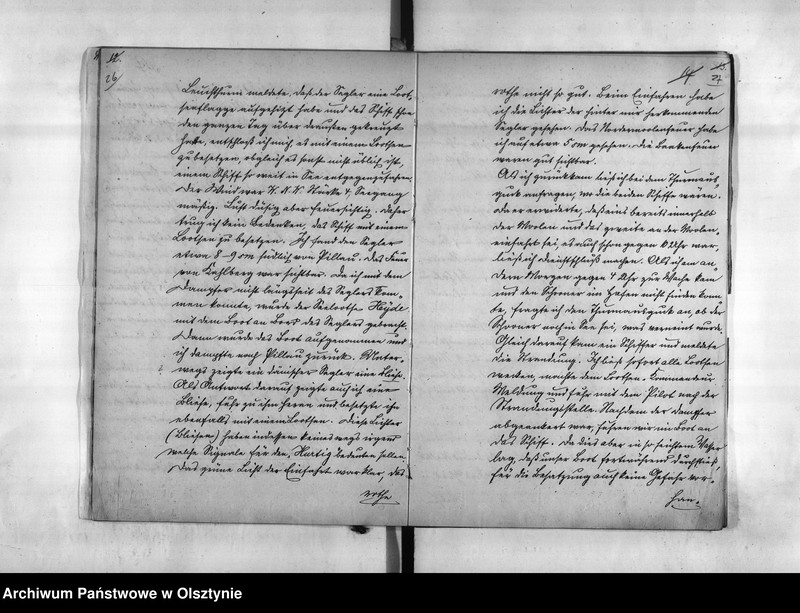 12.
26
Leuchtthurm meldete, daß der Segler eine Loot-
senflagge aufgehißt habe und das Schiff schon
den ganzen Tag über draußen gekreuzt
hatte, entschloß ich mich, es mit einem Lootsen
zu besetzen, obgleich es sonst nicht üblich ist,
einem Schiff so weit in See entgegenzufahren.
Der Wind war W.N.W. Stärke 4. Seegang
mäßig. Luft diesig aber feuersichtig. Daher
trug ich kein Bedenken, das Schiff mit einem
Lootsen zu besetzen. Ich fand den Segler
etwa 8-9 sm südlich von Pillau. Das Feuer
von Kahlberg war sichtbar. Da ich mit dem
Dampfer nicht längsseit des Seglers kom-
men konnte, wurde der Seelootse Heyde
mit dem Boot an Bord des Seglers gebracht.
Dann wurde das Boot aufgenommen und
ich dampfte nach Pillau zurück. Unter-
wegs zeigte ein dänischer Segler eine Blüse.
Als Antwort darauf zeigte auch ich eine
Blüse, fuhr zu ihm heran und besetzte ihn
ebenfalls mit einem Lootsen. Diese Lichter
(Blüsen) haben indessen keineswegs irgend
welche Signale für den "Hartig" bedeuten sollen.
Das grüne Licht der Einfahrt war klar, das
rothe
14
27
rothe nicht so gut. Beim Einfahren habe
ich die Lichter der hinter mir herkommenden
Segler gesehen. Das Nordermolenfeuer habe
ich auf etwa 5 sm gesehen. Die Baakenfeuer
waren gut sichtbar.
Als ich zurückkam ließ ich bei dem Thurmaus-
guck anfragen, wo die beiden Schiffe wären.
Da er erwiderte, daß eins bereits innerhalb
der Molen und das zweite an der Molen-
einfahrt sei, es auch schon gegen Uhr war,
ließ ich Dienstschluß machen. Als ich am an-
dern Morgen gegen 4 Uhr zur Wache kam
und den Schoner im Hafen nicht finden konn-
te, fragte ich den Thurmausguck an, ob der
Schooner noch in See sei, was verneint wurde.
Gleich darauf kam ein Schiffer und meldete
die Strandung. Ich ließ sofort alle Lootsen
wecken, machte dem Lootsen-Kommandeur
Meldung und fuhr mit dem Pilot nach der
Strandungsstelle. Nachdem der Dampfer
abgeankert war, fuhren wir im Boot an
das Schiff. Da dies aber in so seichtem Wasser
lag, daß unser Boot fortwährend durchstieß,
für die Besatzung auch keine Gefahr vor-
han-
Archiwum Państwowe w Olsztynie